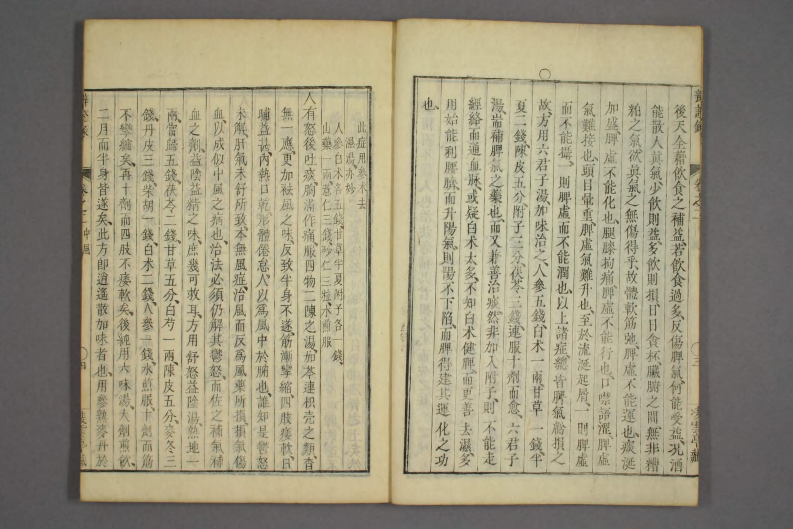 後天全藉飲食之補益若飲食過多反傷脾氣何能受益况酒
能散人眞氣少飲則益多飲則損日日食杯臟腑之間無非糟
粕之氣欲眞氣之無傷得乎故體軟筋弛脾虛不能運也痰涎
加盛脾虛不能化也腿膝拘痛脾虛不能行也口噤語澀脾虛
氣難接也頭目暈重脾虛氣難升也至於流涎起屑一則脾虛
而不能攝一則脾虛而不能潤也以上諸症總皆脾氣虧損之
故方用六君子湯加味治之人參五錢白术一兩甘草一錢半
夏二錢陳皮五分附子三分茯苓三錢連服十劑而愈六君子
湯耑補脾氣之藥也而又兼善治痰然非加入附子則不能走
經絡而通血脉或疑白术太多不知白术健脾而更善去濕多
用始能利腰臍而升陽氣則陽不下陷而脾得建其運化之功
也
此症用參术去
濕湯亦妙
人參白术各五錢甘草半夏附子各一錢
山藥一兩薏仁三錢砂仁三粒水煎服
人有怒後吐痰胸滿作痛服四物二陳之湯加芩連枳壳之類杳
無一應更加祛風之味反致半身不遂筋漸攣縮四肢痿軟日
晡益甚内熱口乾形體倦怠人以爲風中於腑也誰知是鬱怒
未解肝氣未舒所致本無風症治風而反爲風藥所損損氣傷
血以成似中風之病也治法必須仍解其鬱怒而佐之補氣補
血之劑益陰益精之味庶幾可救耳方用舒怒益陰湯熟地一
兩當歸五錢茯苓二錢甘草五分白芍一兩陳皮五分麥冬三
錢丹皮三錢柴胡一錢白术二錢人參一錢水煎服十劑而筋
不攣縮矣再十劑而四肢不痿軟矣後純用六味湯大劑煎飲
二月而半身皆遂矣此方卽逍遙散加味者也用參熟麥丹於